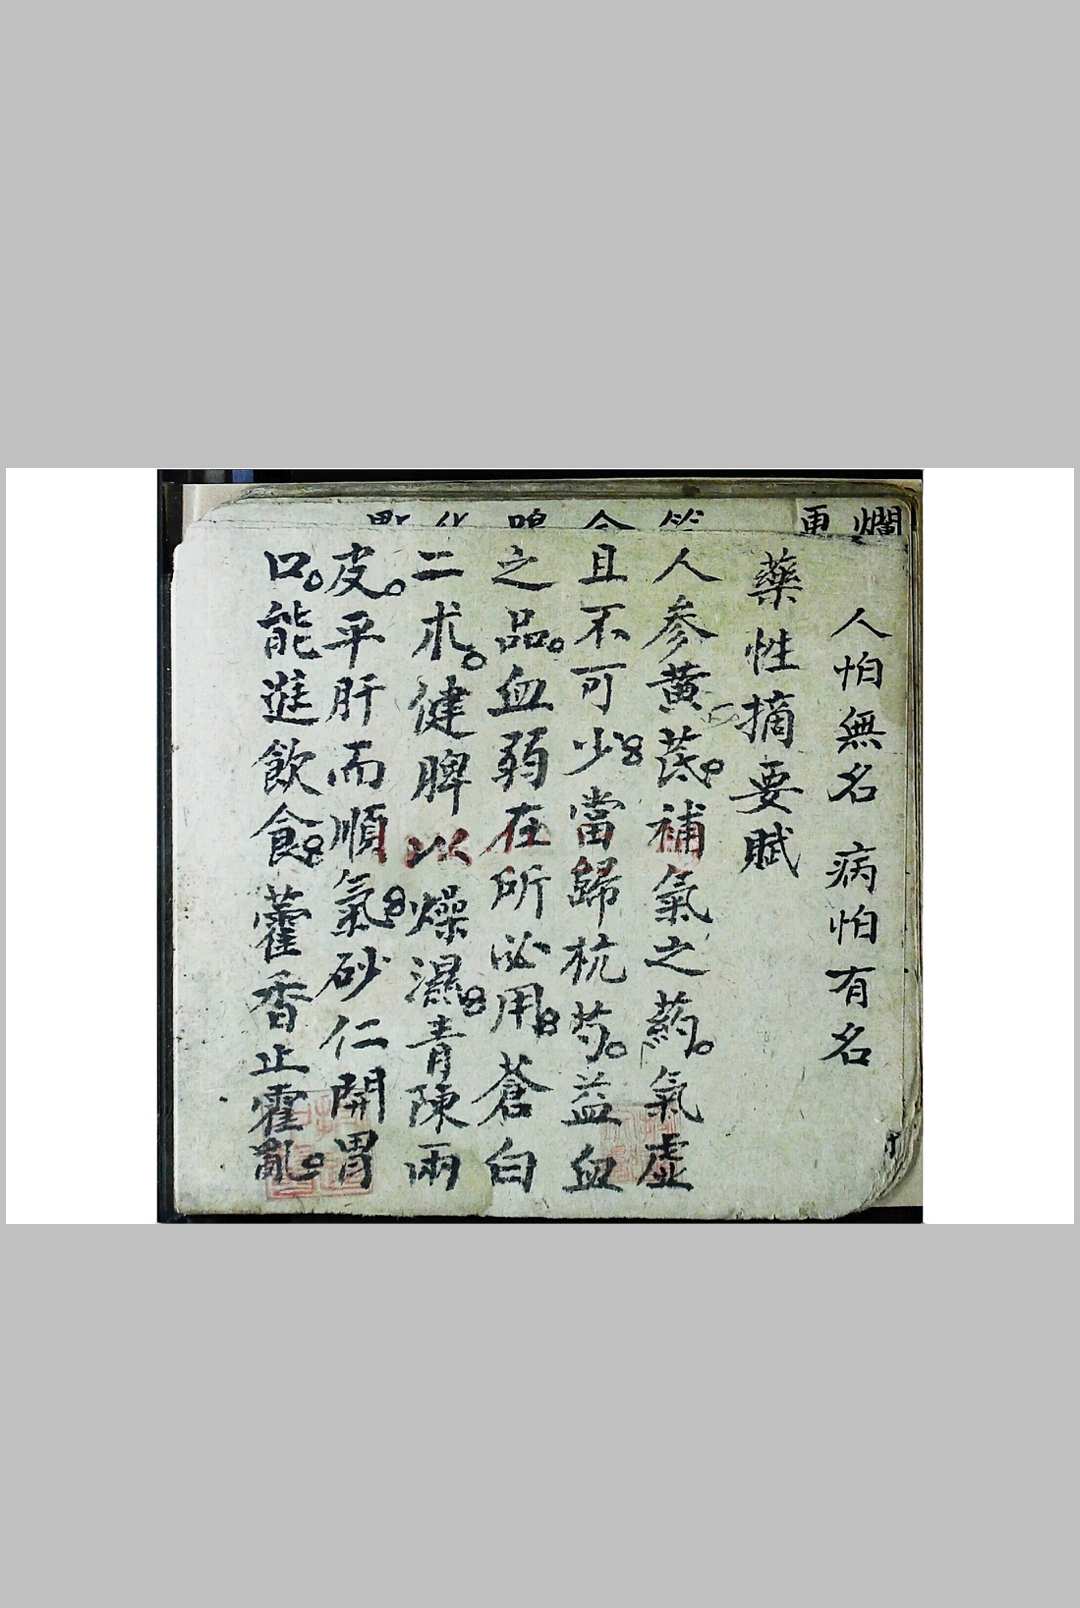 人怕無名 病怕有名
藥性摘要賦
人參黃茋。補氣之药。氣虛
且不可少。當歸杭芍。益血
之品。血弱在所必用。蒼白
二朮。健脾以燥濕。青陳兩
皮。平肝而順氣。砂仁開胃
口。能進飲食。藿香止霍亂。